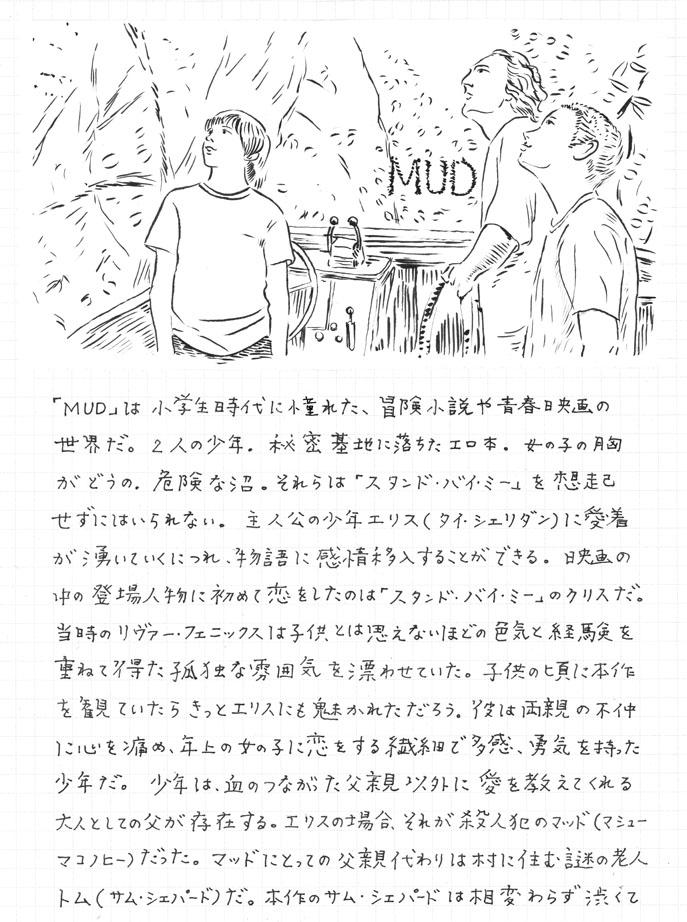 MUD
「MUD」は 小学生時代に憧れた、冒険小説や青春映画の
世界だ。2人の少年。秘密基地に落ちたエロ本。女の子の胸
がどうの。危険な沼。それらは「スタンド・バイ・ミー」を想起
せずにはいられない。主人公の少年エリス(タイ・シェリダン)に愛着
が湧いていくにつれ、物語に感情移入することができる。映画の
中の登場人物に初めて恋をしたのは「スタンド・バイ・ミー」のクリスだ。
当時のリヴァー・フェニックスは子供とは思えないほどの色気と経験を
重ねて得た孤独な雰囲気を漂わせていた。子供の頃に本作
を観ていたらきっとエリスにも魅かれただろう。彼は両親の不仲
に心を痛め、年上の女の子に恋をする繊細で多感、勇気を持った
少年だ。 少年は、血のつながった父親以外に愛を教えてくれる
大人としての父が存在する。エリスの場合、それが殺人犯のマッド(マシュー・
マコノヒー)だった。マッドにとっての父親代わりは村に住む謎の老人
トム(サム・シェパード)だ。本作のサム・シェパードは相変わらず渋くて